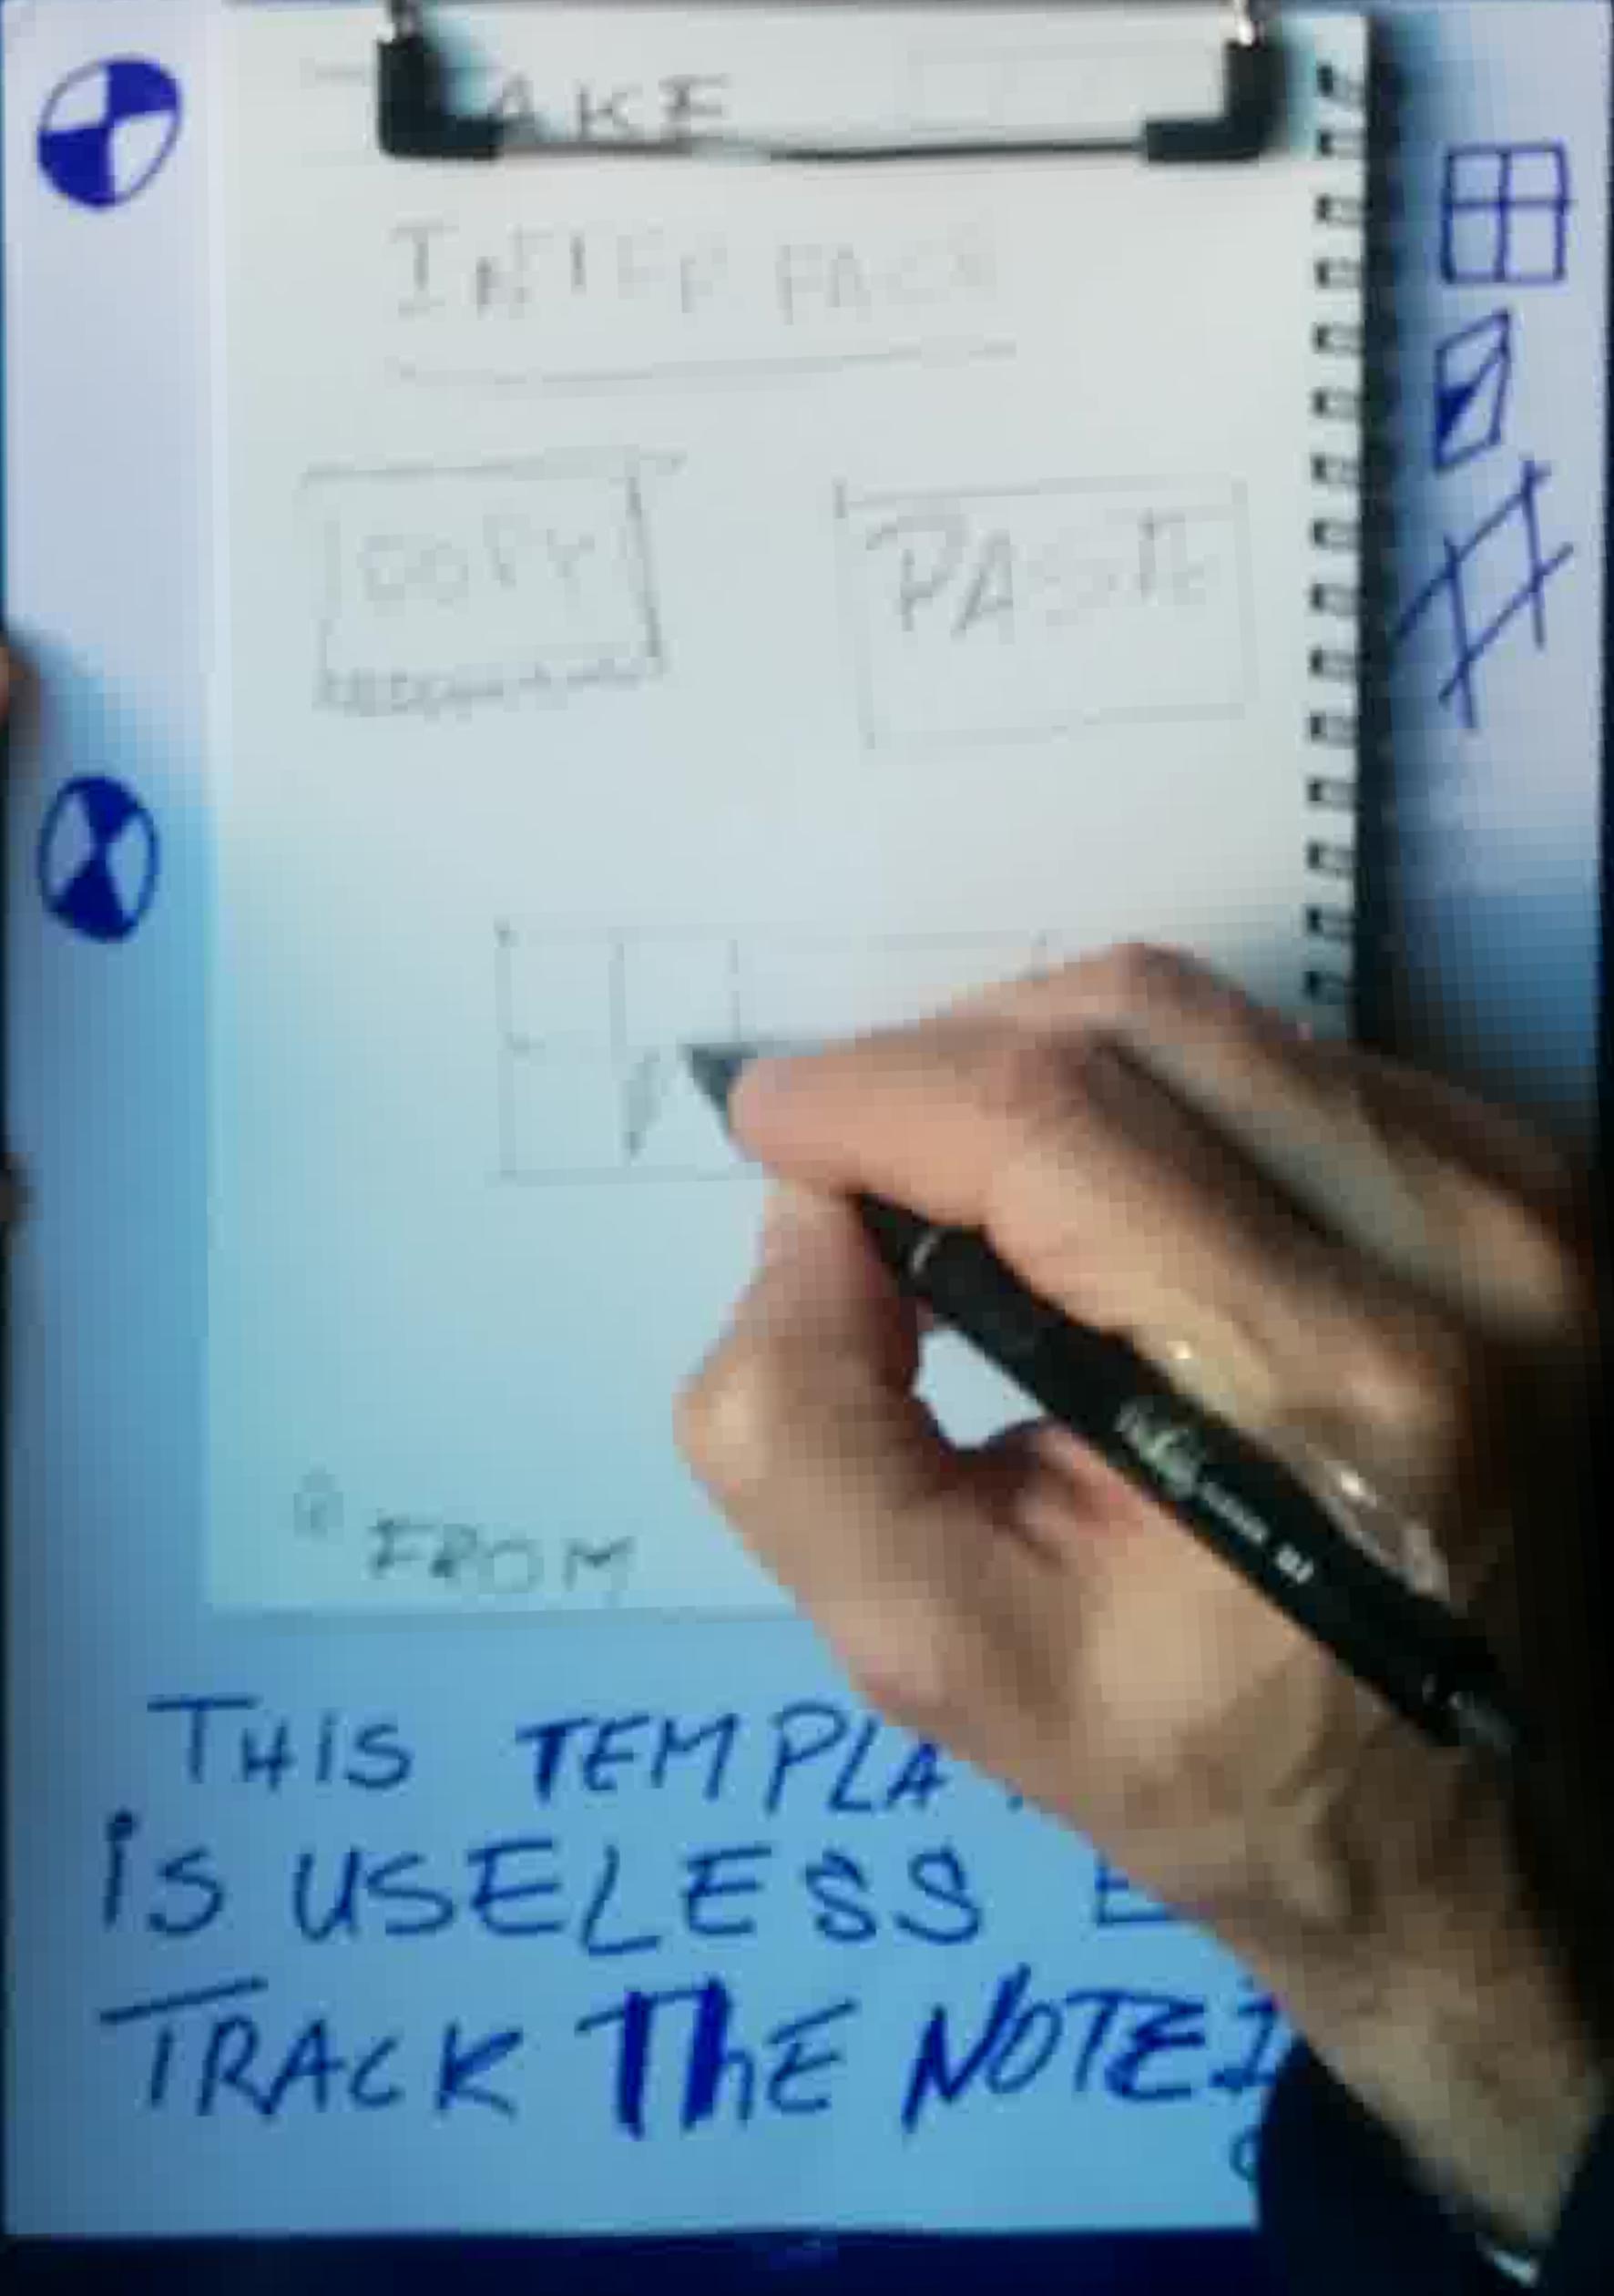 AKE
INTERFACE
COPY
PASTE
FROM
THIS TEMPLA
is USELESS E
TRACK ThE